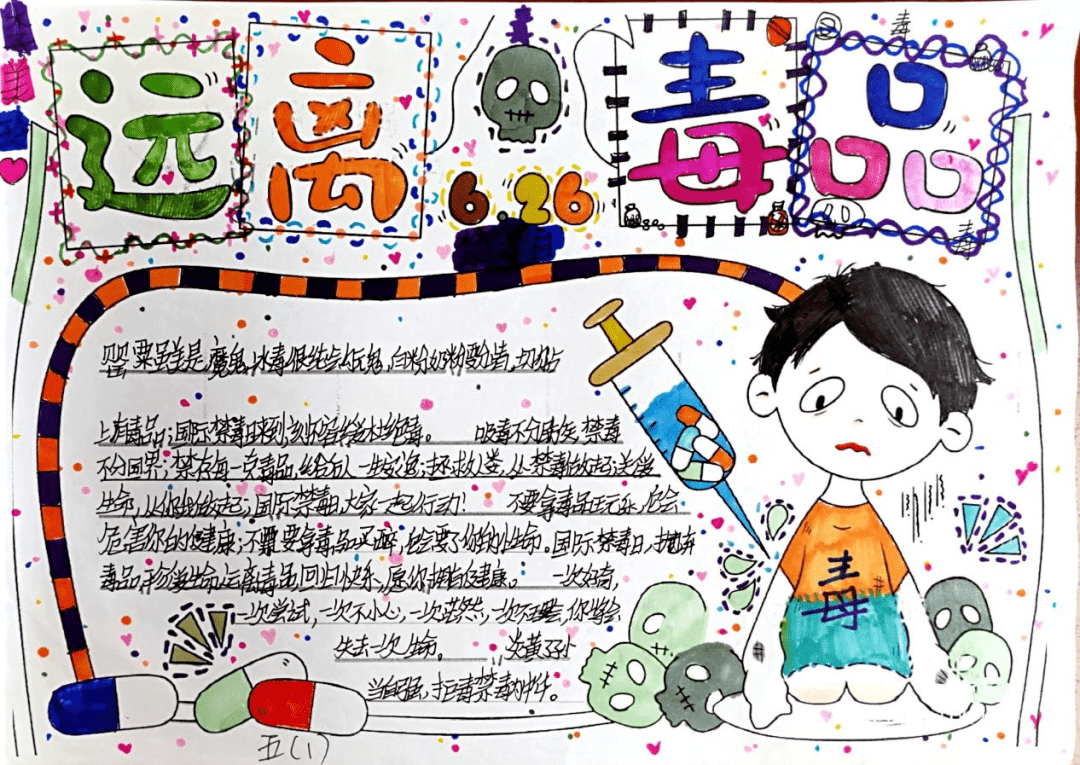 远离毒品
6.26
罂粟虽美是魔鬼,冰毒很纯尝
白粉奶粉要分清,切勿沾
上有毒品;国际禁毒日来到, 吸毒不分 禁毒
不分国界; 每一点毒品, 一生 ;拯救人类,从禁毒做起;
生命,从你我做起;国际禁毒日,大家一起行动! 不要拿毒品玩乐,它会
危害你的健康;不要拿毒品买醉,它会要了你的性命。国际禁毒日,抛弃
毒品,珍爱生命;远离毒品,回归快乐,愿你拥有健康。 一次好奇,
一次尝试,一次不小心,一次茫然,一次不理会,你将会
失去一次生命。 炎黄子孙
当自强,拒毒禁毒
毒
五(1)